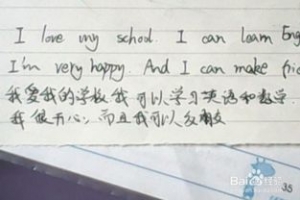 I love my school. I can learn Eng
I'm very happy. And I can make frie
我爱我的学校 我可以学习英语和数学
我很开心, 而且我可以交朋友
Baidu 经验